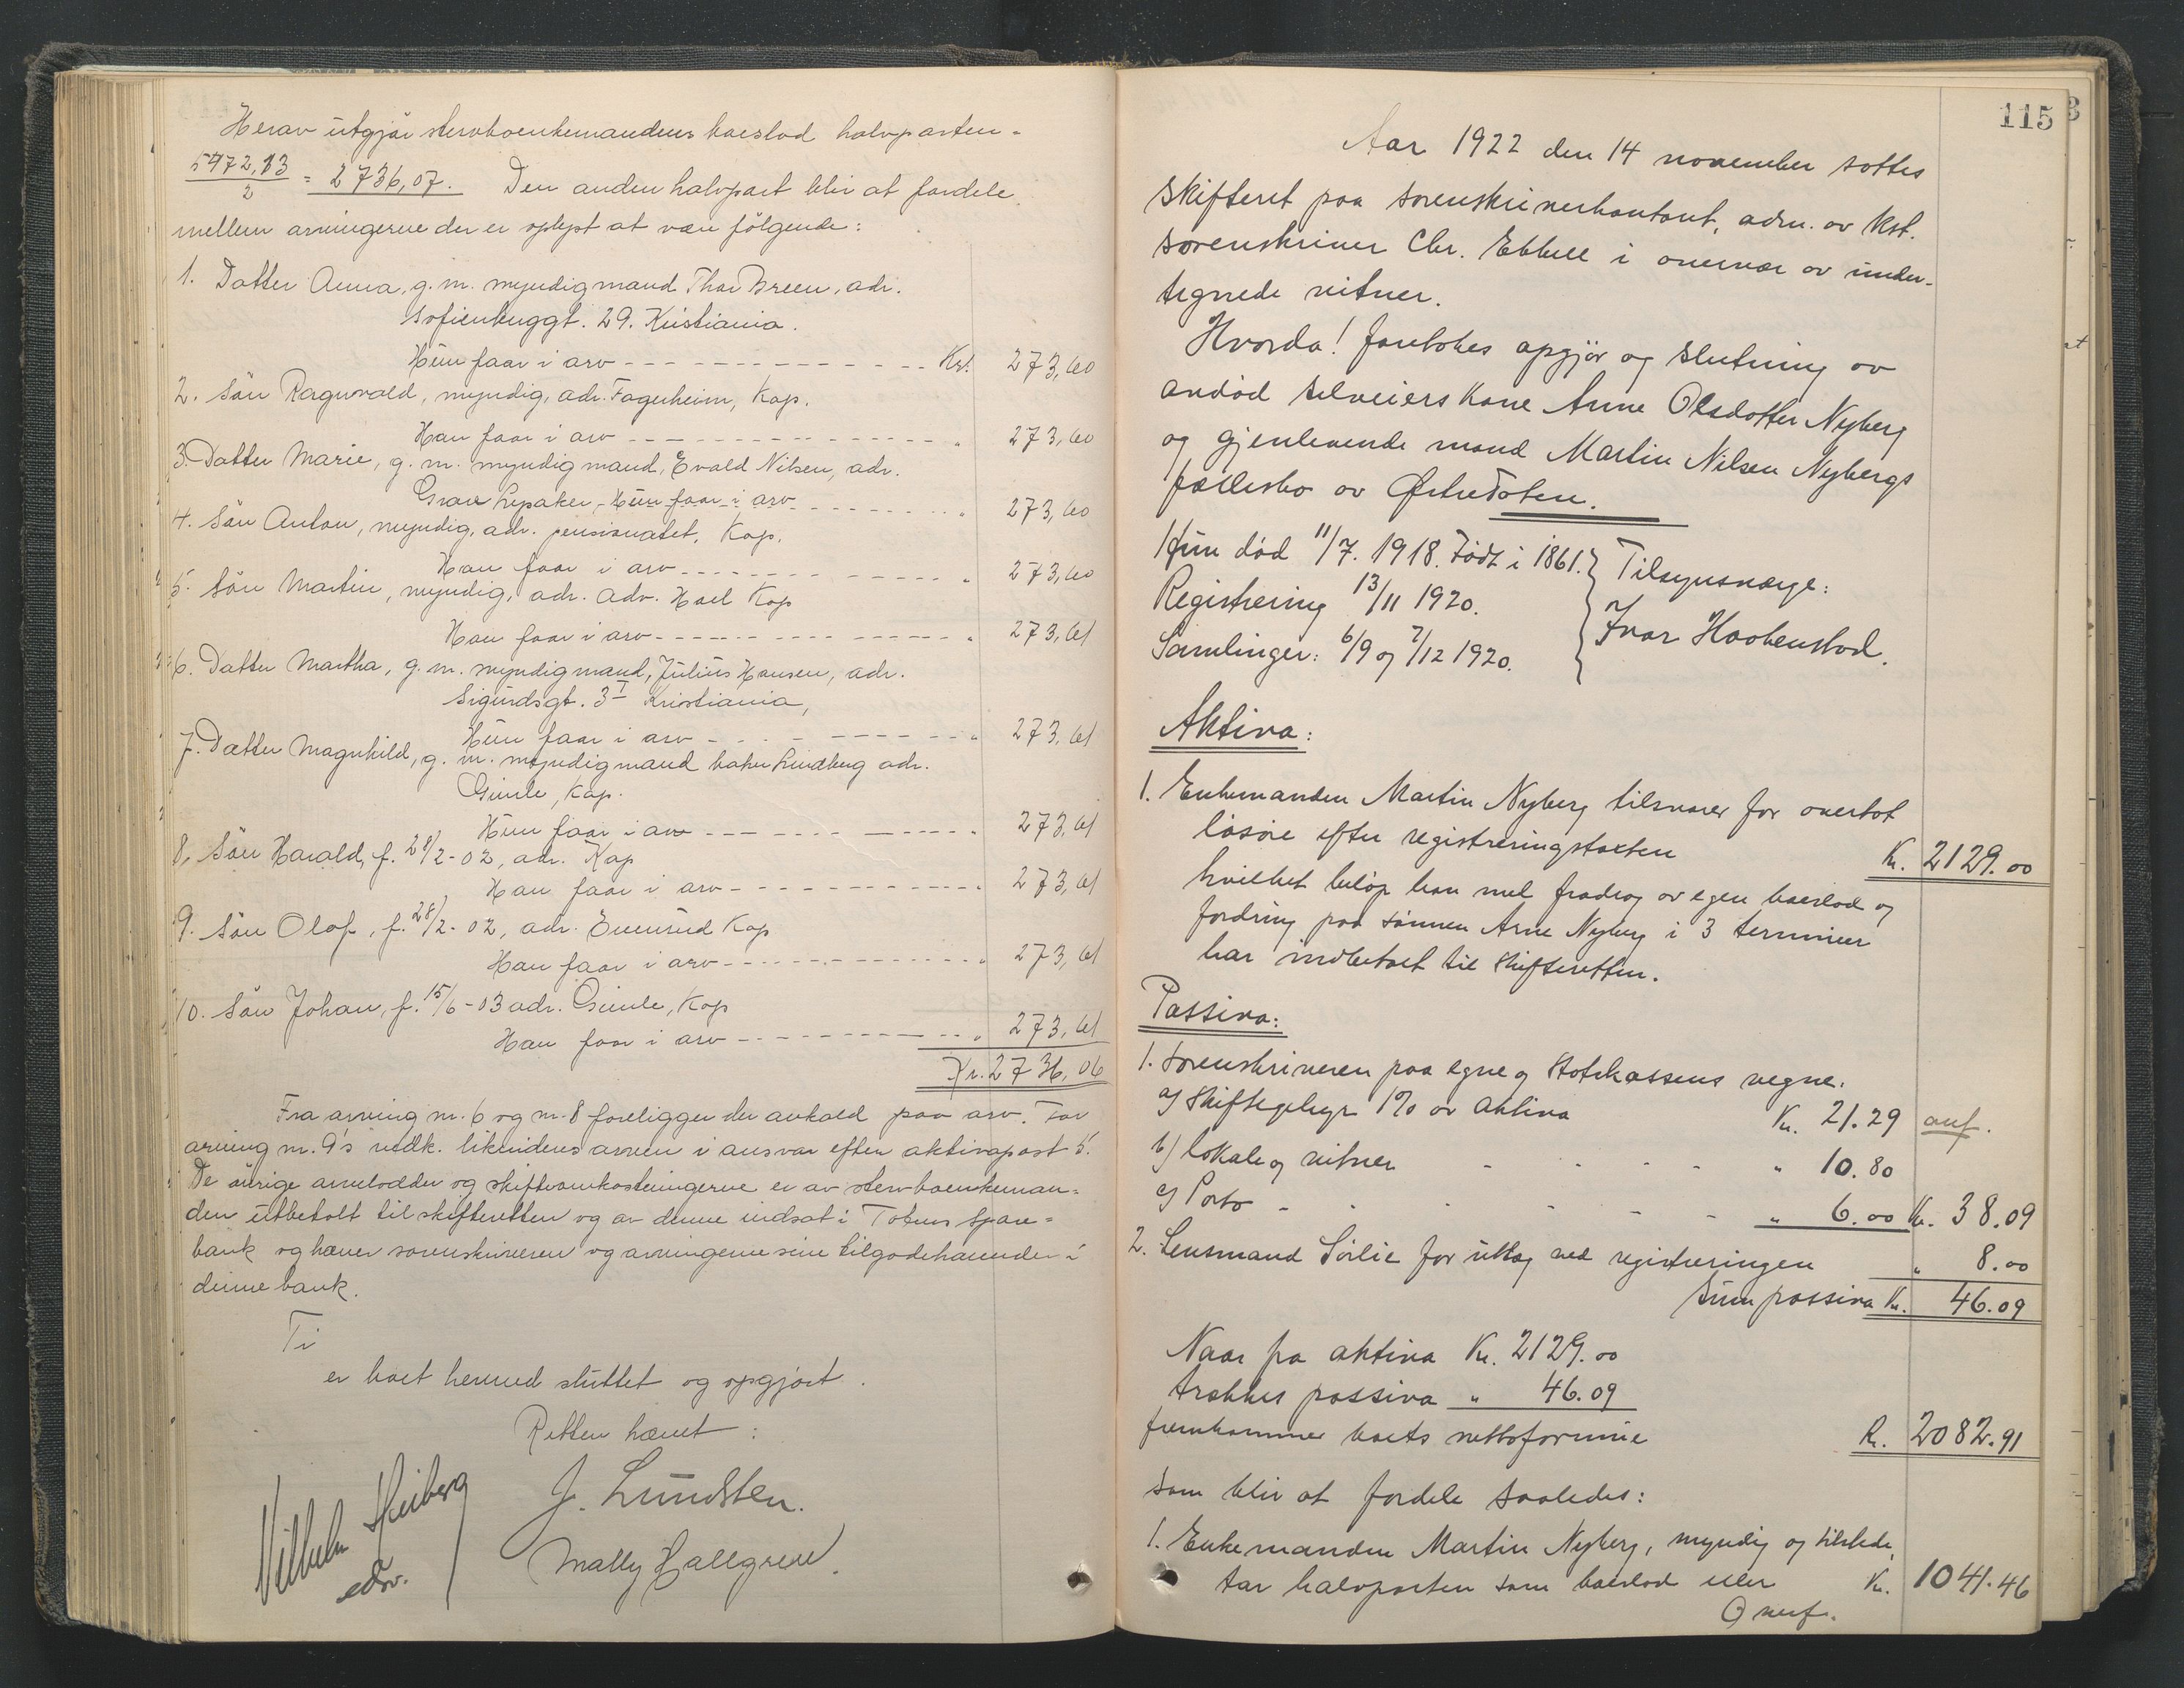 Herav utgjør stervboenkemandens boeslod halvparten =
5472,13
2
= 2736,07. Den anden halvpart blir at fordele
mellem arvingerne der er oplyst at være følgende:
1. Datter Anna, g. m. myndig mand Thor Breen, adr.
Sofienbuggt. 29. Kristiania.
Hun faar i arv - - - - - Kr. 273,60
2. Søn Ragnvald, myndig, adr. Fagerheim, Kap.
Han faar i arv - - - - - " 273,60
3. Datter Marie, g. m. myndig mand, Evald Nilsen, adr.
Grav Lysaker, - Hun faar i arv - - - - - " 273,60
4. Søn Anton, myndig, adr. pensionatet, Kap.
Han faar i arv - - - - - " 273,60
5. Søn Martin, myndig, adr. Adv. Hoel Kap
Han faar i arv - - - - - " 273,61
6. Datter Martha, g. m. myndig mand, Julius Hansen, adr.
Sigurdsgt. 3 I Kristiania,
Hun faar i arv - - - - - " 273,61
7. Datter Magnhild, g. m. myndig mand baker Lindberg adr.
Gimle, Kap.
Hun faar i arv - - - - - " 273,61
8. Søn Harald, f. 28/2-02, adr. Kap
Han faar i arv - - - - - " 273,61
9. Søn Olaf, f. 28/2-02, adr. Evenrud Kap
Han faar i arv - - - - - " 273,61
10. Søn Johan, f. 15/6-03 adr. Gimle, Kap
Han faar i arv - - - - - " 273,61
Kr. 2736,06
Fra arving nr. 6 og nr. 8 foreligger der avkald paa arv. For
arving nr. 9's vedk. likvideres arven i ansvar efter aktivapost 5.
De øvrige arvelodder og skifteomkostningerne er av stervboenkeman=
den utbetalt til skifteretten og av denne indsat i Totens Spare=
bank og hæver sorenskriveren og arvingerne sine tilgodehavender i
denne bank.
Ti
er boet herved sluttet og opgjort.
Retten hævet:
Vilhelm Heiberg
edsv.
J. Lundsten.
Mally Hallgren.
115
Aar 1922 den 14 november sattes
skifteret paa sorenskriverkontoret, adm. av kst.
sorenskriver Chr. Ebbell i overvær av under-
tegnede vitner.
Hvorda! foretokes opgjør og slutning av
avdød selveierskone Anne Olsdatter Nyberg
og gjenlevende mand Martin Nilsen Nybergs
fællesbo av Østre Toten.
Hun død 11/7. 1918. Født i 1861.
Registrering 13/11 1920.
Samlinger: 6/9 og 7/12 1920.
Tilsynsværge:
Ivar Haakenstad.
Aktiva:
1. Enkemanden Martin Nyberg tilsvarer for overtat
løsøre efter registreringstaxten Kr. 2129.00
hvilket beløp han med fradrag av egen boeslod og
fordring paa sønnen Arne Nyberg i 3 terminer
har indbetalt til skifteretten.
Passiva:
1. Sorenskriveren paa egne og Statskassens vegne:
a/ Skiftegebyr 1% av aktiva Kr. 21.29 anf.
b/ lokale og vitner - - - - " 10.80
c/ Porto - - - - - " 6.00 Kr. 38.09
2. Lensmand Sørlie for utlæg ved registreringen " 8.00
Sum passiva Kr. 46.09
Naar fra aktiva Kr. 2129.00
trækkes passiva " 46.09
fremkommer boets nettoformue Kr. 2082.91
som blir at fordele saaledes:
1. Enkemanden Martin Nyberg, myndig og tilstede,
tar halvparten som boeslod eller Kr. 1041.46